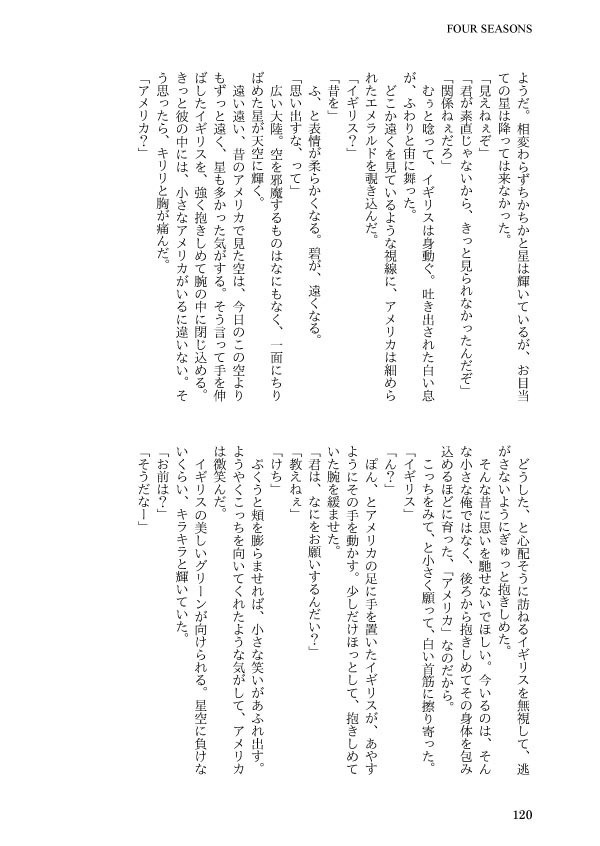 FOUR SEASONS
ようだ。相変わらずちかちかと星は輝いているが、お目当
ての星は降っては来なかった。
「見えねぇぞ」
「君が素直じゃないから、きっと見られなかったんだぞ」
「関係ねぇだろ」
むぅと唸って、イギリスは身動ぐ。吐き出された白い息
が、ふわりと宙に舞った。
どこか遠くを見ているような視線に、アメリカは細めら
れたエメラルドを覗き込んだ。
「イギリス?」
「昔を」
ふ、と表情が柔らかくなる。碧が、遠くなる。
「思い出すな、って」
広い大陸。空を邪魔するものはなにもなく、一面にちり
ばめた星が天空に輝く。
遠い遠い、昔のアメリカで見た空は、今日のこの空より
もずっと遠く、星も多かった気がする。そう言って手を伸
ばしたイギリスを、強く抱きしめて腕の中に閉じ込める。
きっと彼の中には、小さなアメリカがいるに違いない。そ
う思ったら、キリリと胸が痛んだ。
「アメリカ?」
どうした、と心配そうに訪ねるイギリスを無視して、逃
がさないようにぎゅっと抱きしめた。
そんな昔に思いを馳せないでほしい。今いるのは、そん
な小さな俺ではなく、後ろから抱きしめてその身体を包み
込めるほどに育った、「アメリカ」なのだから。
こっちをみて、と小さく願って、白い首筋に擦り寄った。
「イギリス」
「ん?」
ぽん、とアメリカの足に手を置いたイギリスが、あやす
ようにその手を動かす。少しだけほっとして、抱きしめて
いた腕を緩ませた。
「君は、なにをお願いするんだい?」
「教えねぇ」
「けち」
ぷくうと頬を膨らませれば、小さな笑いがあふれ出す。
ようやくこっちを向いてくれたような気がして、アメリカ
は微笑んだ。
イギリスの美しいグリーンが向けられる。星空に負けな
いくらい、キラキラと輝いていた。
「お前は?」
「そうだなー」
120